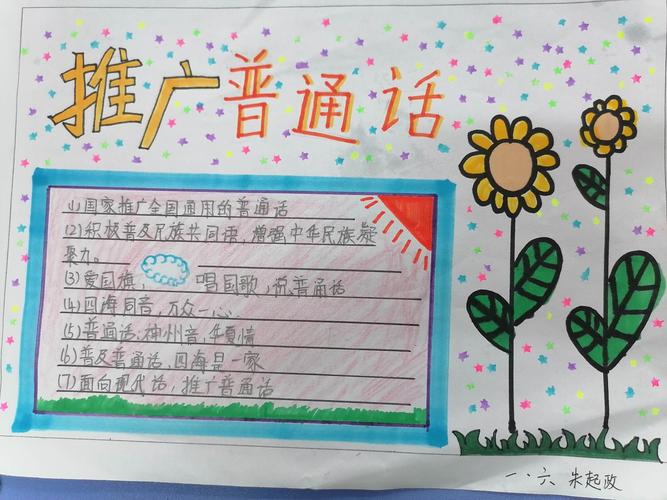 推广普通话
(1)国家推广全国通用的普通话
(2)积极普及民族共同语，增强中华民族凝
聚力。
(3)爱国旗，唱国歌，说普通话
(4)四海同音，万众一心
(5)普通话:神州音,华夏情
(6)普及普通话,四海是一家
(7)面向现代话，推广普通话
一、六 朱起政